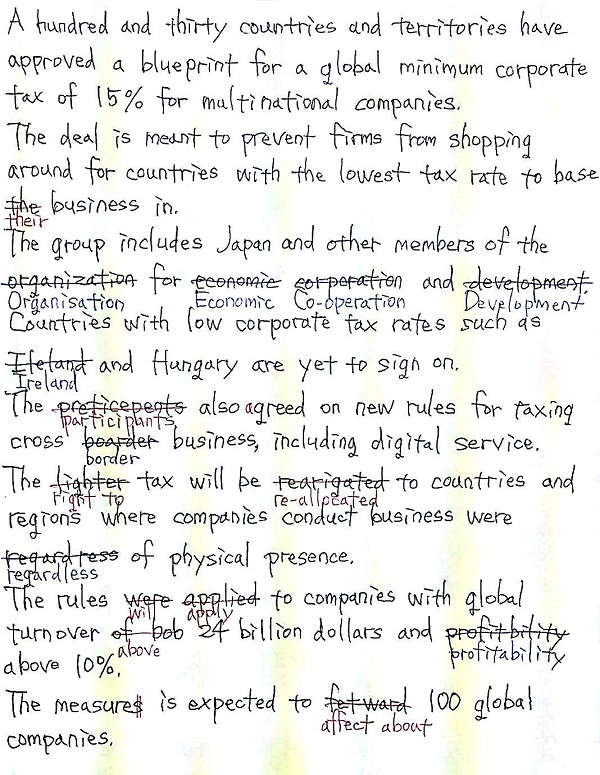 A hundred and thirty countries and territories have
approved a blueprint for a global minimum corporate
tax of 15% for multinational companies.
The deal is meant to prevent firms from shopping
around for countries with the lowest tax rate to base
the business in.
their
The group includes Japan and other members of the
organization for economic corporation and development.
Organisation Economic Co-operation Development
Countries with low corporate tax rates such as
Ifeland and Hungary are yet to sign on.
Ireland
The preticepents also agreed on new rules for taxing
participants
cross boarder business, including digital service.
border
The lighter tax will be rearigated to countries and
right to re-allocated
regions where companies conduct business were
regardress of physical presence.
regardless
The rules were applied to companies with global
will apply
turnover of bob 24 billion dollars and profitbility
above profitability
above 10%.
The measures is expected to fetward 100 global
affect about
companies.